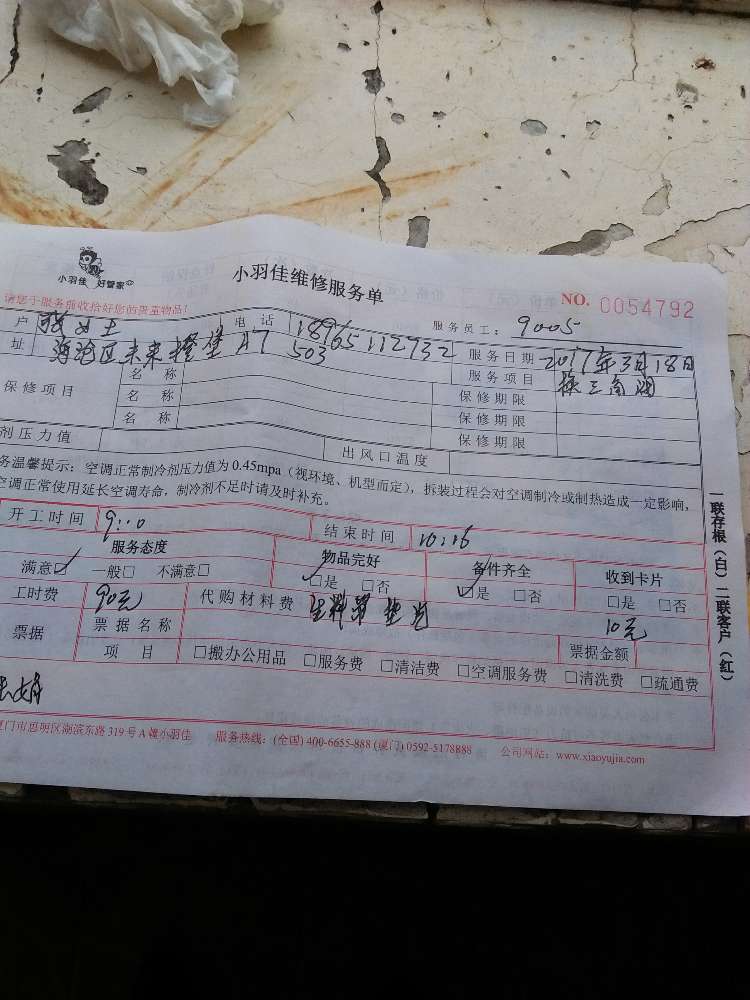 小羽佳 好管家
小羽佳维修服务单
NO. 0054792
请您于服务前收拾好您的贵重物品!
户 女士 电话 18965112932 服务员工: 9005
址 海沧区未来橙堡 A7 503 服务日期 2017年3月18日
服务项目 换三角阀
保修项目 名称 保修期限
名称 保修期限
名称 保修期限
剂压力值 出风口温度
务温馨提示: 空调正常制冷剂压力值为0.45mpa(视环境、机型而定),拆装过程会对空调制冷或制热造成一定影响,
空调正常使用延长空调寿命,制冷剂不足时请及时补充。
开工时间 9:00 结束时间 10:16
服务态度 物品完好 备件齐全 收到卡片
满意☑ 一般□ 不满意□ ☑是 □否 ☑是 □否 □是 □否
工时费 90元 代购材料费 生料带 垫片 10元
票据 票据名称 票据金额
项目 □搬办公用品 □服务费 □清洁费 □空调服务费 □清洗费 □疏通费
厦门市思明区湖滨东路319号A幢小羽佳 服务热线: (全国) 400-6655-888 (厦门) 0592-5178888 公司网站: www.xiaoyujia.com
一联存根(白)二联客户(红)